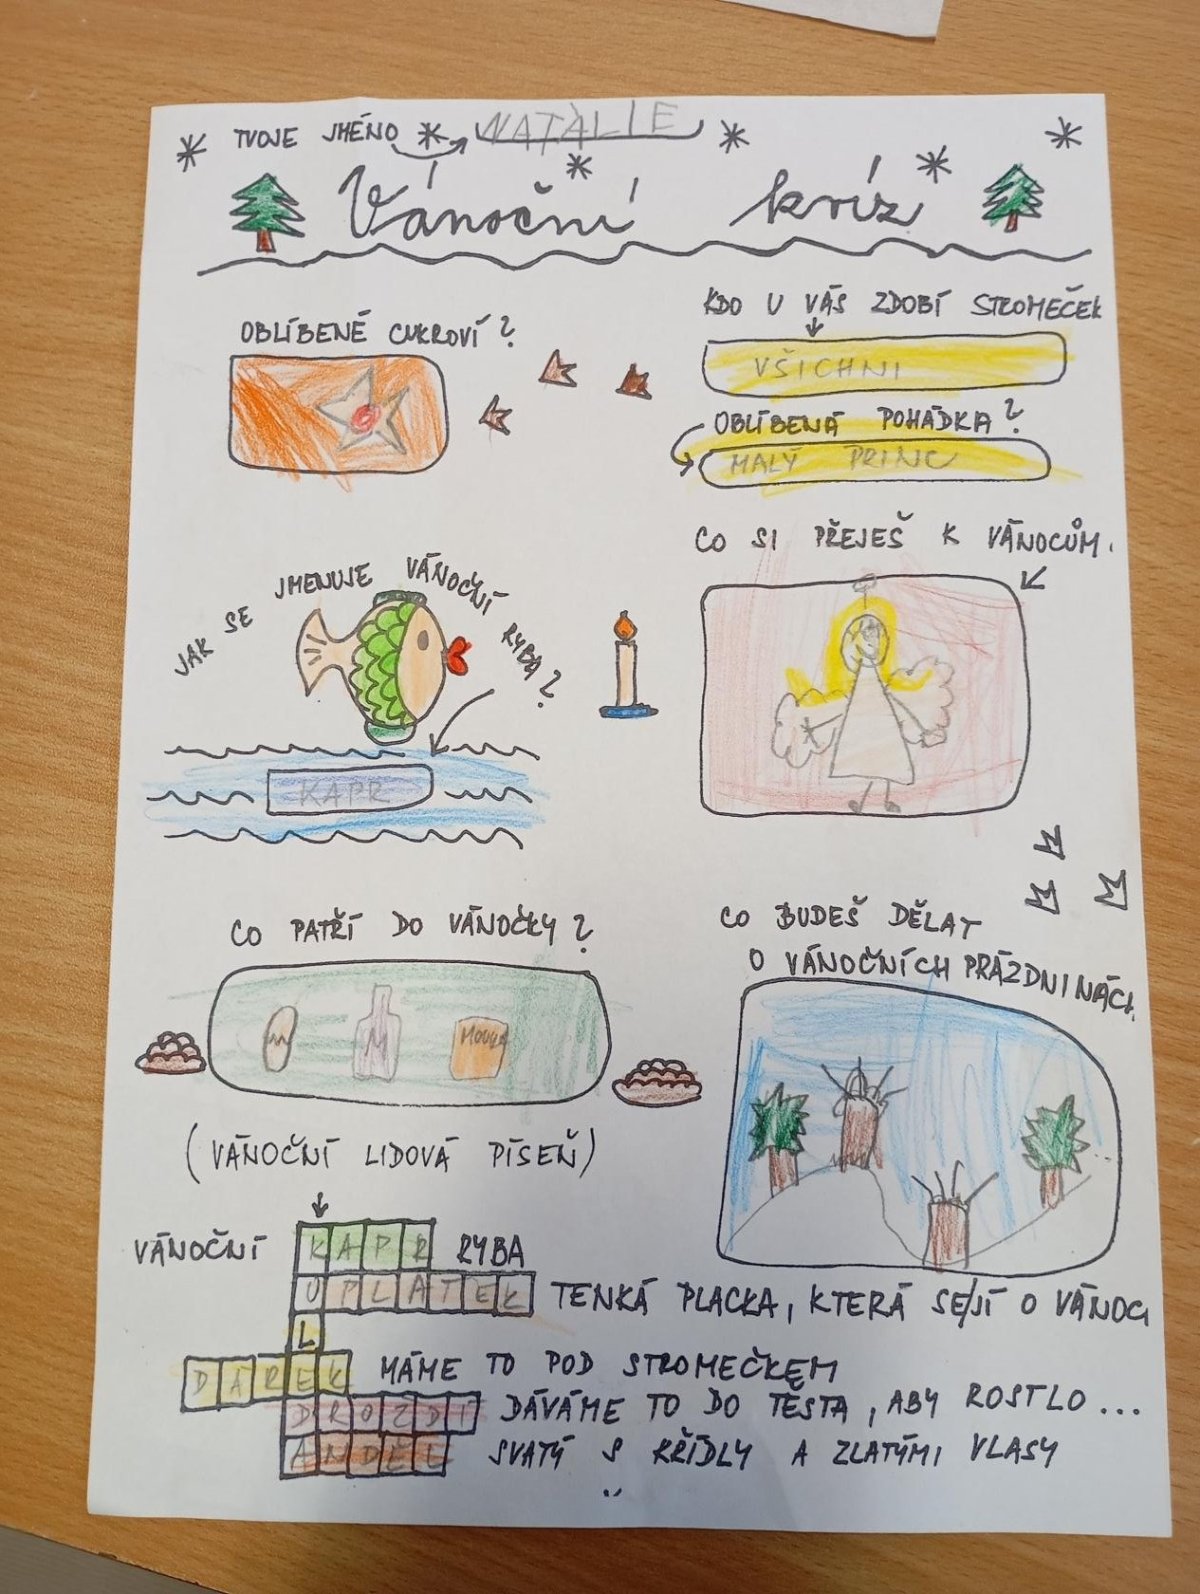 TVOJE JMÉNO NATÁLIE
Vánoční kvíz
OBLÍBENÉ CUKROVÍ?
KDO U VÁS ZDOBÍ STROMEČEK
VŠICHNI
OBLÍBENÁ POHÁDKA?
MALÝ PRINC
CO SI PŘEJEŠ K VÁNOCŮM.
JAK SE JMENUJE VÁNOČNÍ RYBA?
KAPR
CO PATŘÍ DO VÁNOČKY?
MOUKA
CO BUDEŠ DĚLAT
O VÁNOČNÍCH PRÁZDNINÁCH
(VÁNOČNÍ LIDOVÁ PÍSEŇ)
VÁNOČNÍ KAPR RYBA
OPLATEK TENKÁ PLACKA, KTERÁ SE JÍ O VÁNOC
L
DÁREK MÁME TO POD STROMEČKEM
DROŽDÍ DÁVÁME TO DO TĚSTA, ABY ROSTLO...
ANDĚL SVATÝ S KŘÍDLY A ZLATÝMI VLASY